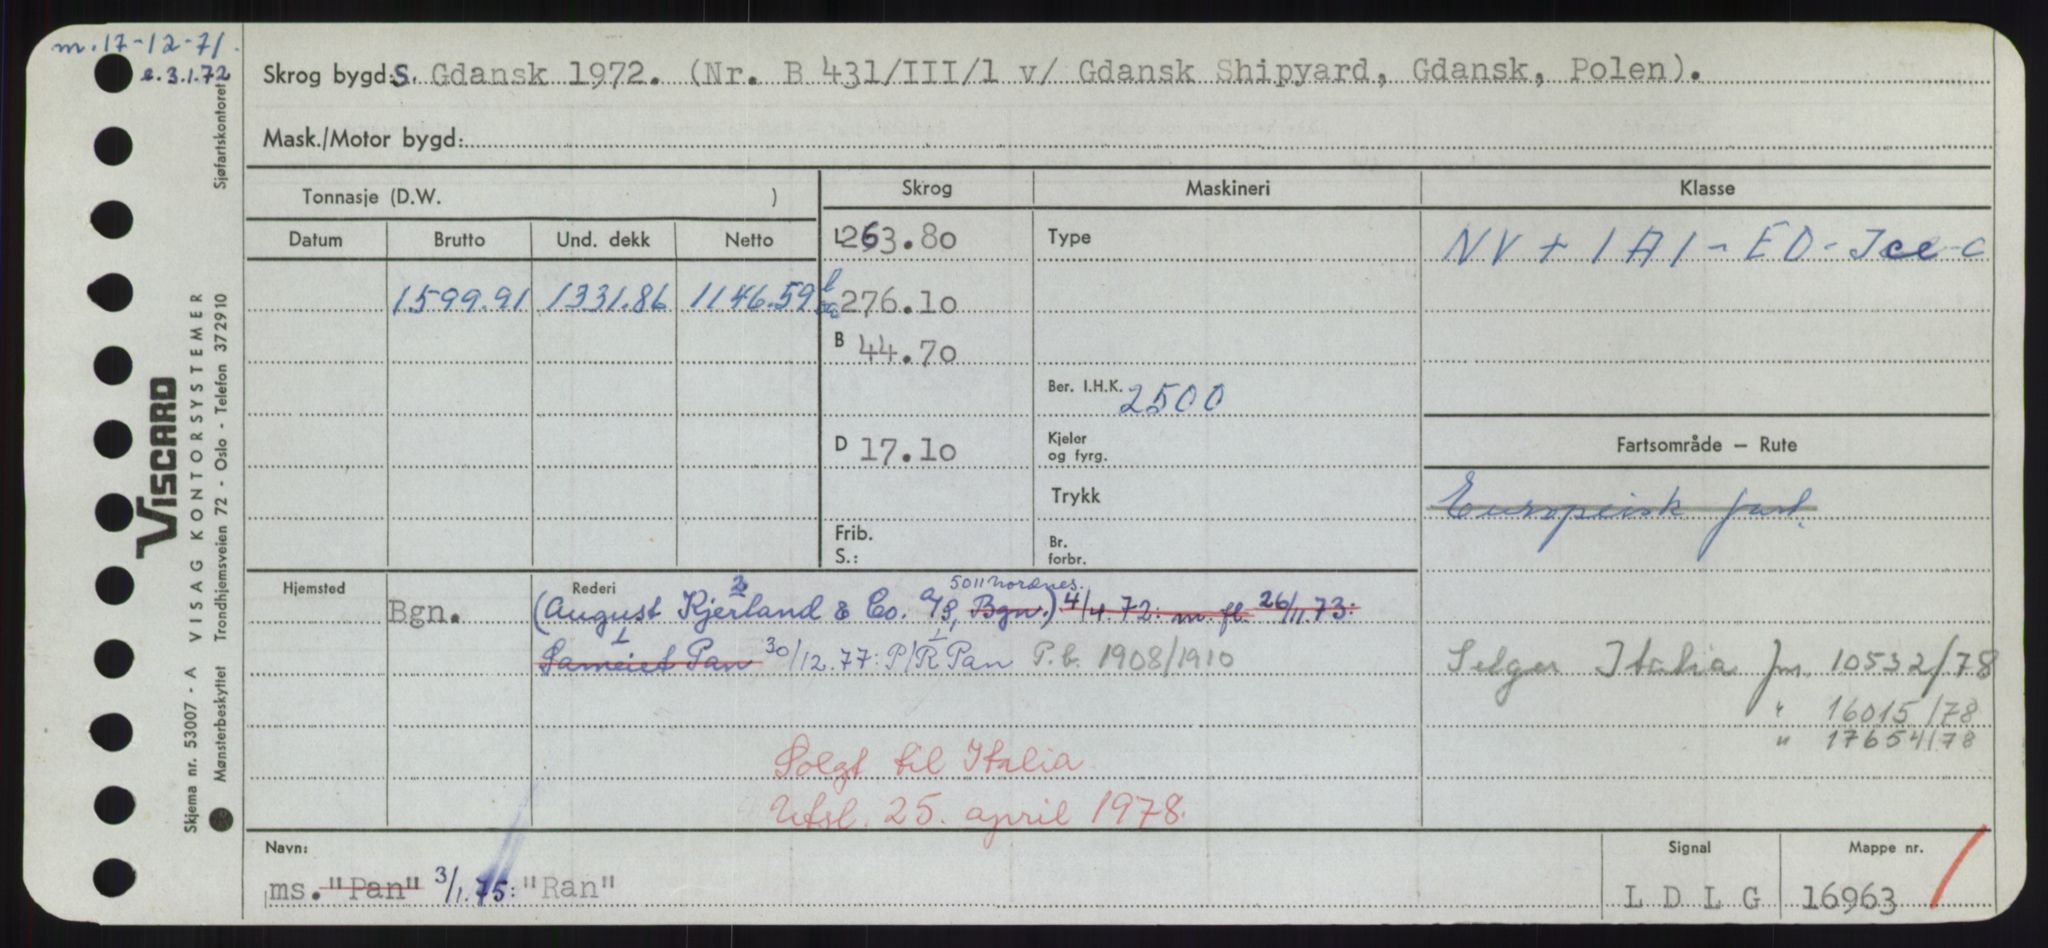 m. 17-12-71.
e. 3.1.72
Sjøfartskontoret
Skrog bygd: S. Gdansk 1972. (Nr. B 431/III/1 v/ Gdansk Shipyard, Gdansk, Polen).
Mask./Motor bygd:
Tonnasje (D.W. )
Skrog
Maskineri
Klasse
Datum Brutto Und. dekk Netto
L 263.80
Type
NV + 1A1 - EO - Ice - C
1599.91 1331.86 1146.59
276.10
B 44.70
Ber. I.H.K. 2500
D 17.10
Kjeler
og fyrg.
Fartsområde — Rute
Trykk
Europeisk fart.
Frib.
S.:
Br.
forbr.
Hjemsted
Rederi
5011 Nordnes.
Bgn. (August Kjerland & Co. A/S, Bgn.) 4/4.72: m. fl. 26/11.73:
2
1 1
Sameiet Pan 30/12.77: P/R Pan P.b. 1908/1910
Selges Italia jnr. 10532/78
" 16015/78
" 17654/78
Solgt til Italia
Utsl. 25. april 1978.
Navn:
Signal
Mappe nr.
ms. "Pan" 3/1.75: "Ran"
L D L G
16963
VISCARD
VISAG KONTORSYSTEMER
Skjema nr. 53007 - A
Mønsterbeskyttet Trondhjemsveien 72 - Oslo - Telefon 372910